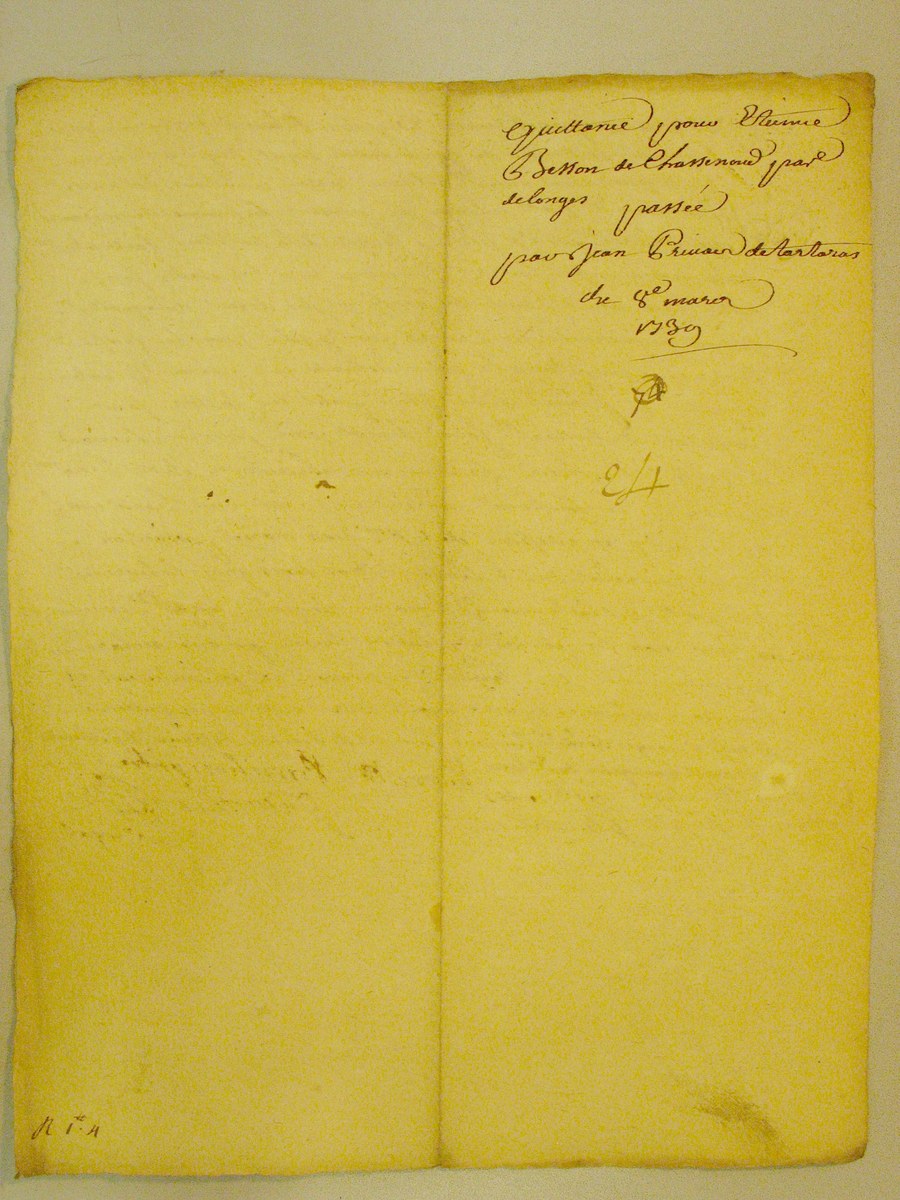 Quittance pour Etienne
Besson de Chassenoud par.e
de longes passée
par Jean Privat de tartaras
du 8e mars
1739
74
24
R 1re 4